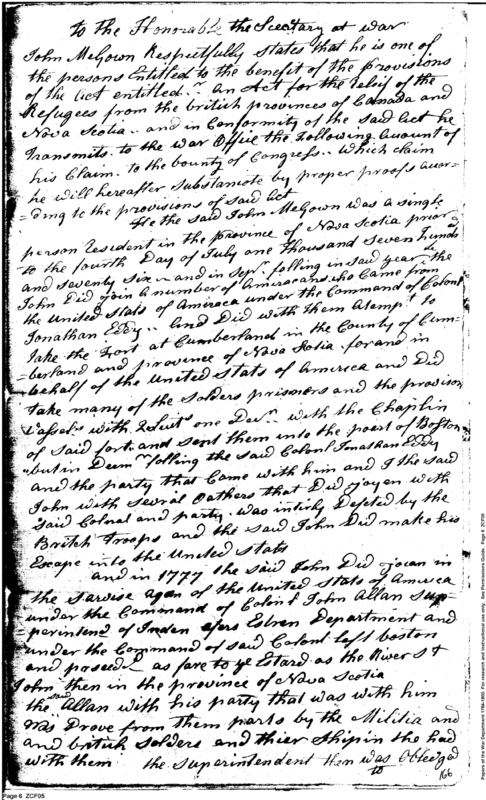 to the Honorable the Secetary at war
John McGown Respectfully states that he is one of
the persons Entitled to the benefit of the provisions
of the Act entitled " An Act for the relief of the
Refugees from the british provinces of Canada and
Nova Scotia " and in Conformity of the said Act he
Transmits to the war Office the Following Amount of
his Claim to the bounty of Congress " which claim
he will hereafter substanciate by proper proofs Accor=
=ding to the provisions of said Act
He the said John McGown was a single
person Resident in the province of Nova Scotia prior
to the fourth Day of July one Thousand seven hund
and seventy six and in Sepr. folling in said year the
John Did Join a number of Amiracans who Came from
the united Stats of Amiraca under the Command of Colonl
Jonathan Eddy " And Did with them Atempt to
Take the Fort at Cumberland in the County of Cum=
=berland and province of Nova Scotia for and in
behalf of the United Stats of America and Did
Take many of the Solders prisoners and the provison
with 2 Liut one with the Chaplin
of said fort and sent them into the poart of Boston
but in Decm folling the said Colonl Jonathan Eddy
and the party that Came with him and I the said
John with several oathers that Did Joyen with
said Colonal and party was intirly Defeted by the
British Troops and the said John Did make his
Escape into the United Stats
and in 1777 the said John Did Joian in
the sarvise again of the United Stats of America
under the Command of Colonl John Allan Sup=
=perintend of Inden afers Estren Department and
under the Command of said Colonl left boston
and proseed as fare to ye Estard as the River St
John then in the province of Nova Scotia
the said Allan with his party that was with him
was Drove from them parts by the Militia and
and british Solders and thier Ship in the had
with them the Superintendent then was Obledged
to
166
Page 6 ZCF05
Papers of the War Department 1784-1800. For research and instructional use only. See Permissions Guide. Page 6 ZCF05